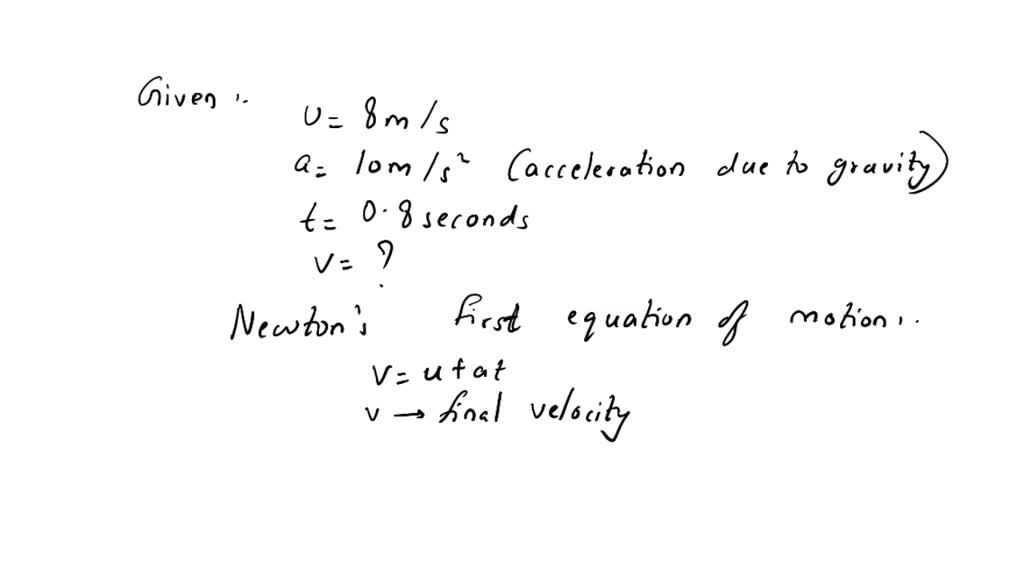 Given :-
u = 8 m/s
a = 10 m/s² (acceleration due to gravity)
t = 0.8 seconds
v = ?
Newton's first equation of motion :-
v = u + at
v → final velocity